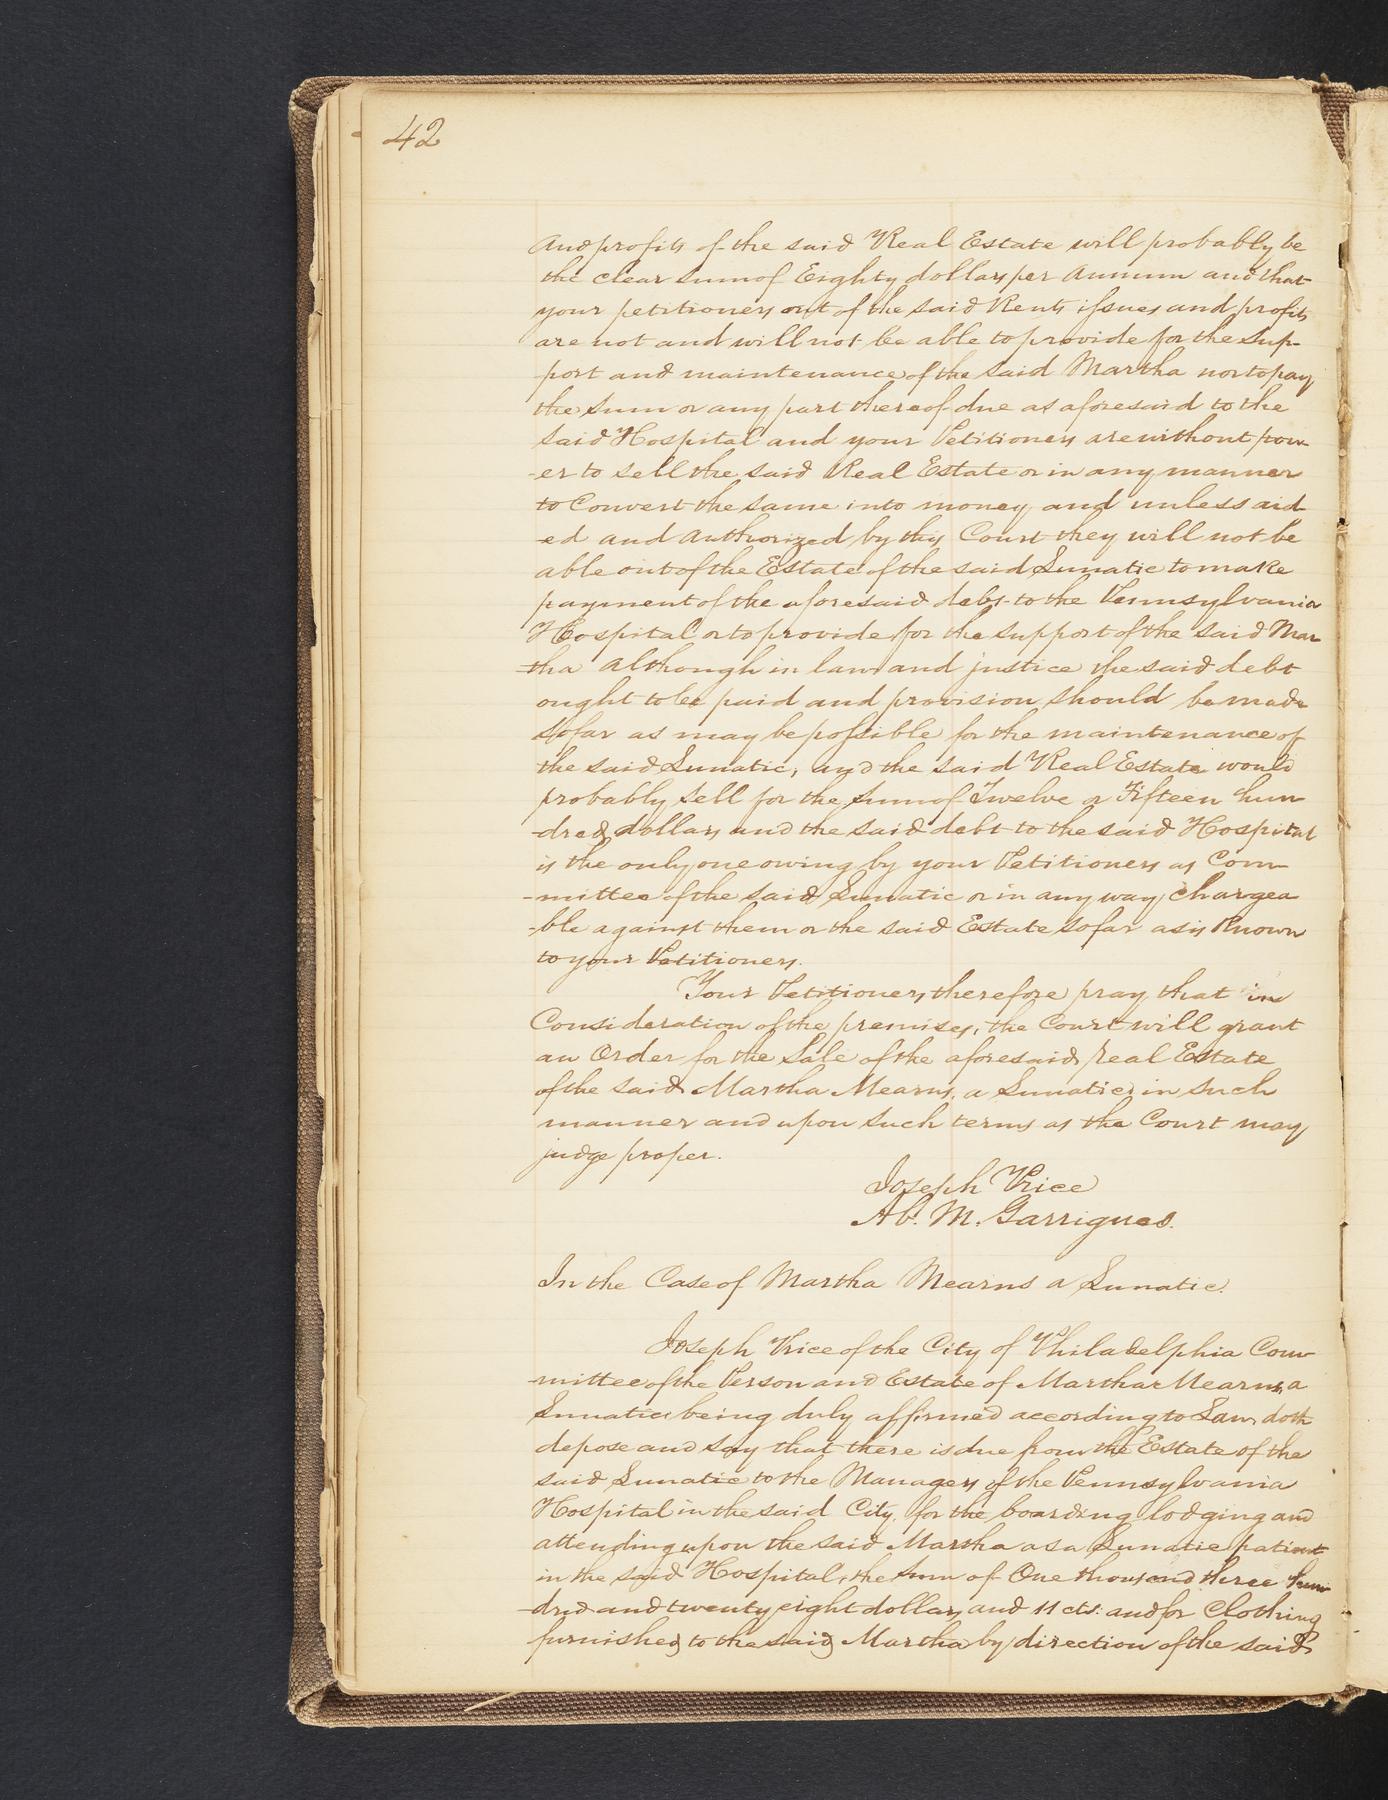 42
and profits of the said Real Estate will probably be
the clear sum of Eighty dollars per Annum and that
your petitioners out of the said Rents issues and profits
are not and will not be able to provide for the sup-
port and maintenance of the said Martha nor to pay
the sum or any part thereof due as aforesaid to the
said Hospital and your Petitioners are without pow-
-er to sell the said Real Estate or in any manner
to Convert the same into money and unless aid
-ed and authorized by this Court they will not be
able out of the Estate of the said Lunatic to make
payment of the aforesaid debt to the Pennsylvania
Hospital or to provide for the support of the said Mar
-tha Although in law and justice the said debt
ought to be paid and provision should be made
so far as may be possible for the maintenance of
the said Lunatic, and the said Real Estate would
probably sell for the sum of Twelve or Fifteen hun
-dred dollars and the said debt to the said Hospital
is the only one owing by your Petitioners as Com-
-mittee of the said Lunatic or in any way Chargea
-ble against them or the said Estate so far as is Known
to your Petitioners.
Your Petitioners therefore pray that in
Consideration of the premises, the Court will grant
an Order for the Sale of the aforesaid real Estate
of the said Martha Mearns, a Lunatic, in such
manner and upon such terms as the Court may
judge proper.
Joseph Price
Ab. M. Garrigues.
In the Case of Martha Mearns a Lunatic.
Joseph Price of the City of Philadelphia Com-
-mittee of the Person and Estate of Martha Mearns, a
Lunatic being duly affirmed according to Law, doth
depose and say that there is due from the Estate of the
said Lunatic to the Managers of the Pennsylvania
Hospital in the said City, for the boarding lodging and
attending upon the said Martha as a Lunatic patient
in the said Hospital, the sum of One thousand three hun
-dred and twenty eight dollars and 11 cts: and for Clothing
furnished to the said Martha by direction of the said